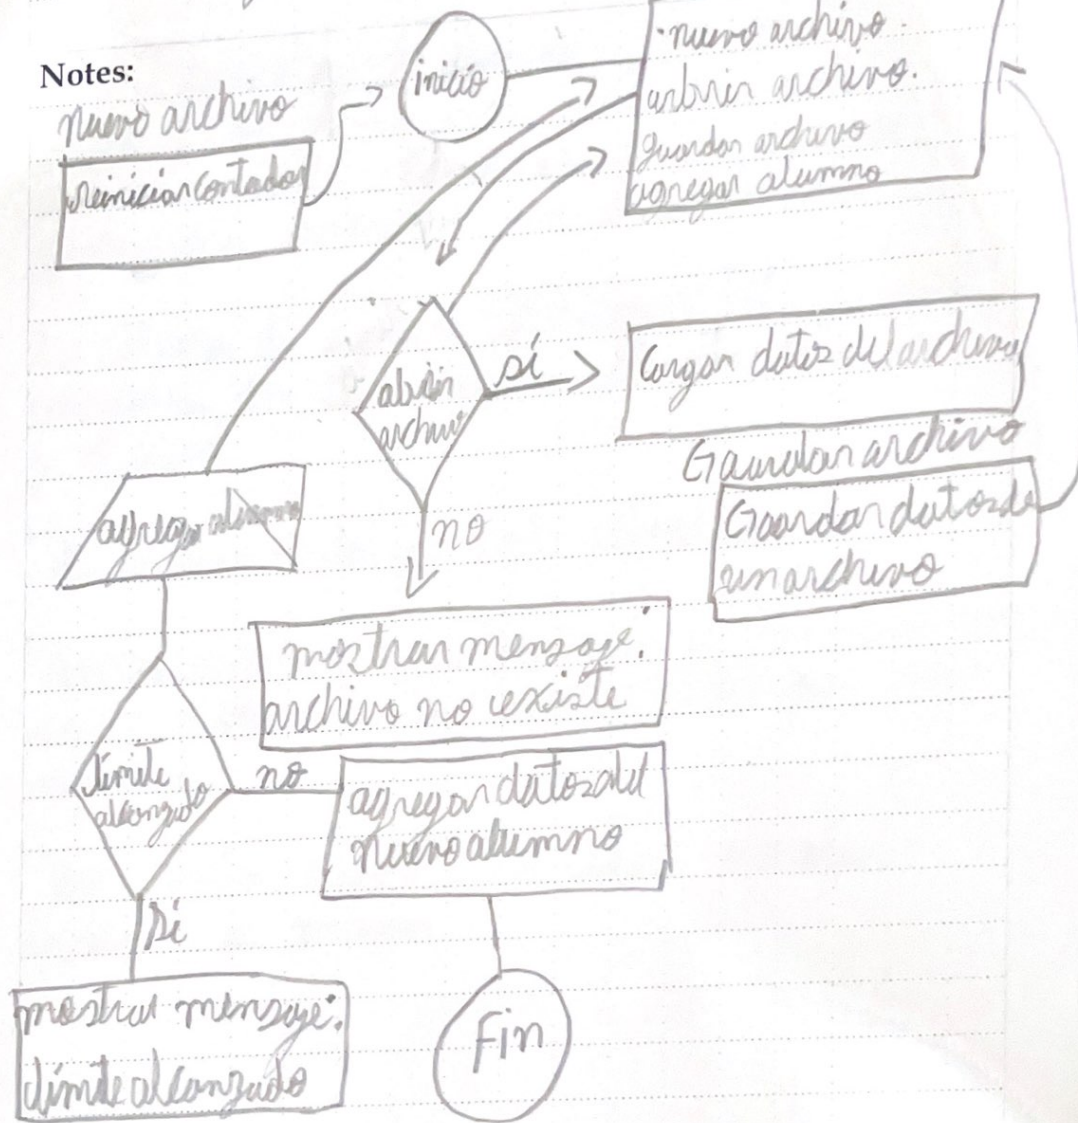 Notes:
nuevo archivo
reiniciar contador
inicio
·nuevo archivo.
arbrir archivo.
guardar archivo
agregar alumno
abrir
archivo
sí
no
Cargar datos del archivo
Gaurdar archivo
Gaardar datos de
un archivo
agregar alumno
mostrar mensaje:
archivo no existe
límite
alcanzado
no
agregar datos del
nuevo alumno
si
mostrar mensaje:
límite alcanzado
Fin